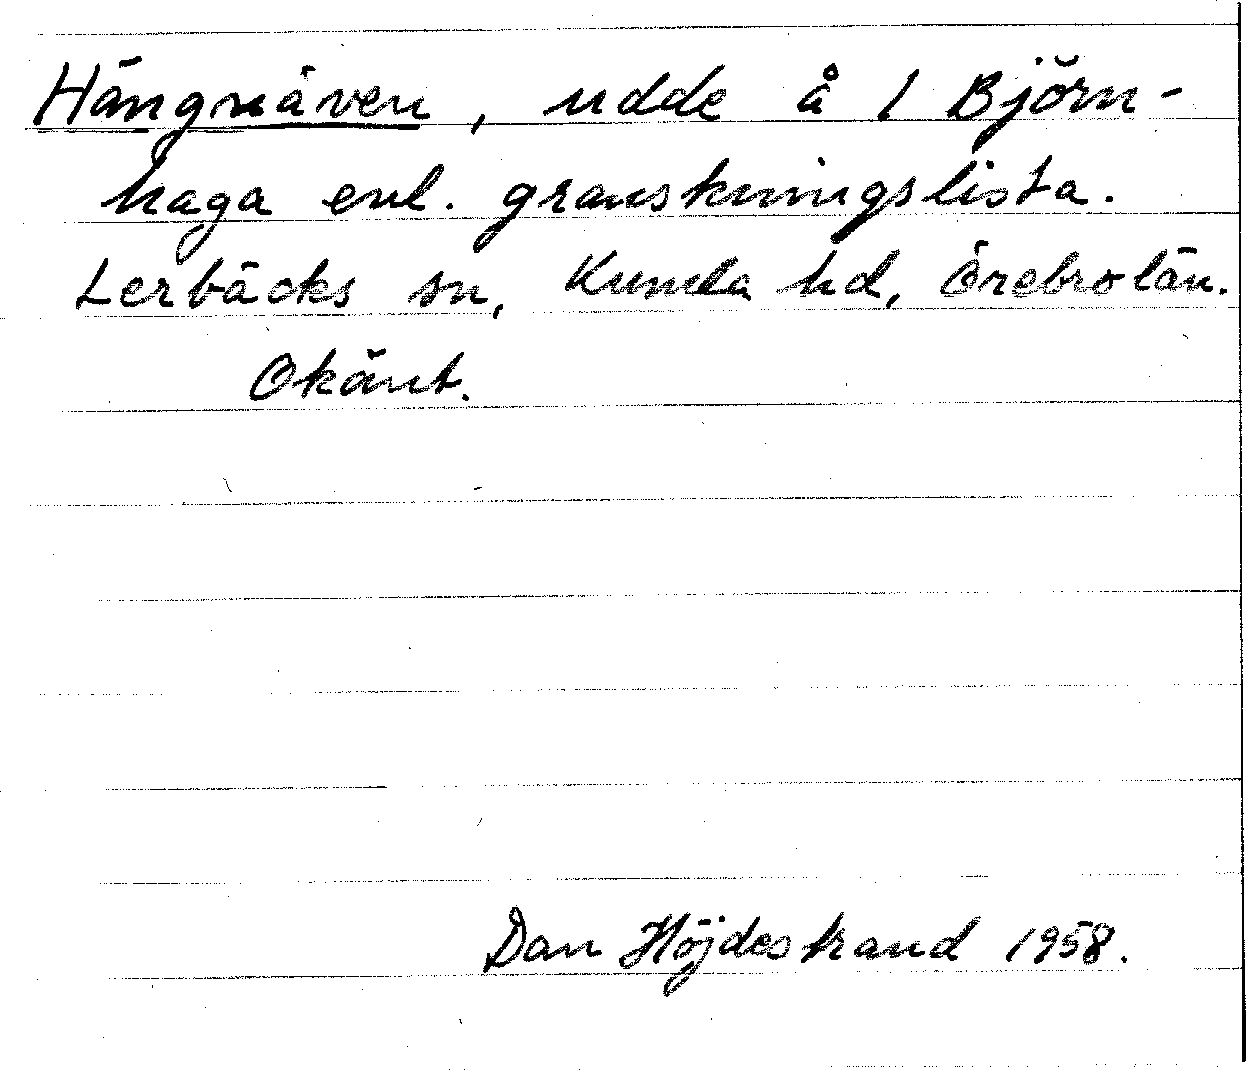 Hängnäven, udde å 1 Björn-
haga enl. granskningslista.
Lerbäcks sn, Kumla hd, Örebro län.
Okänt.
Dan Höjdestrand 1958.